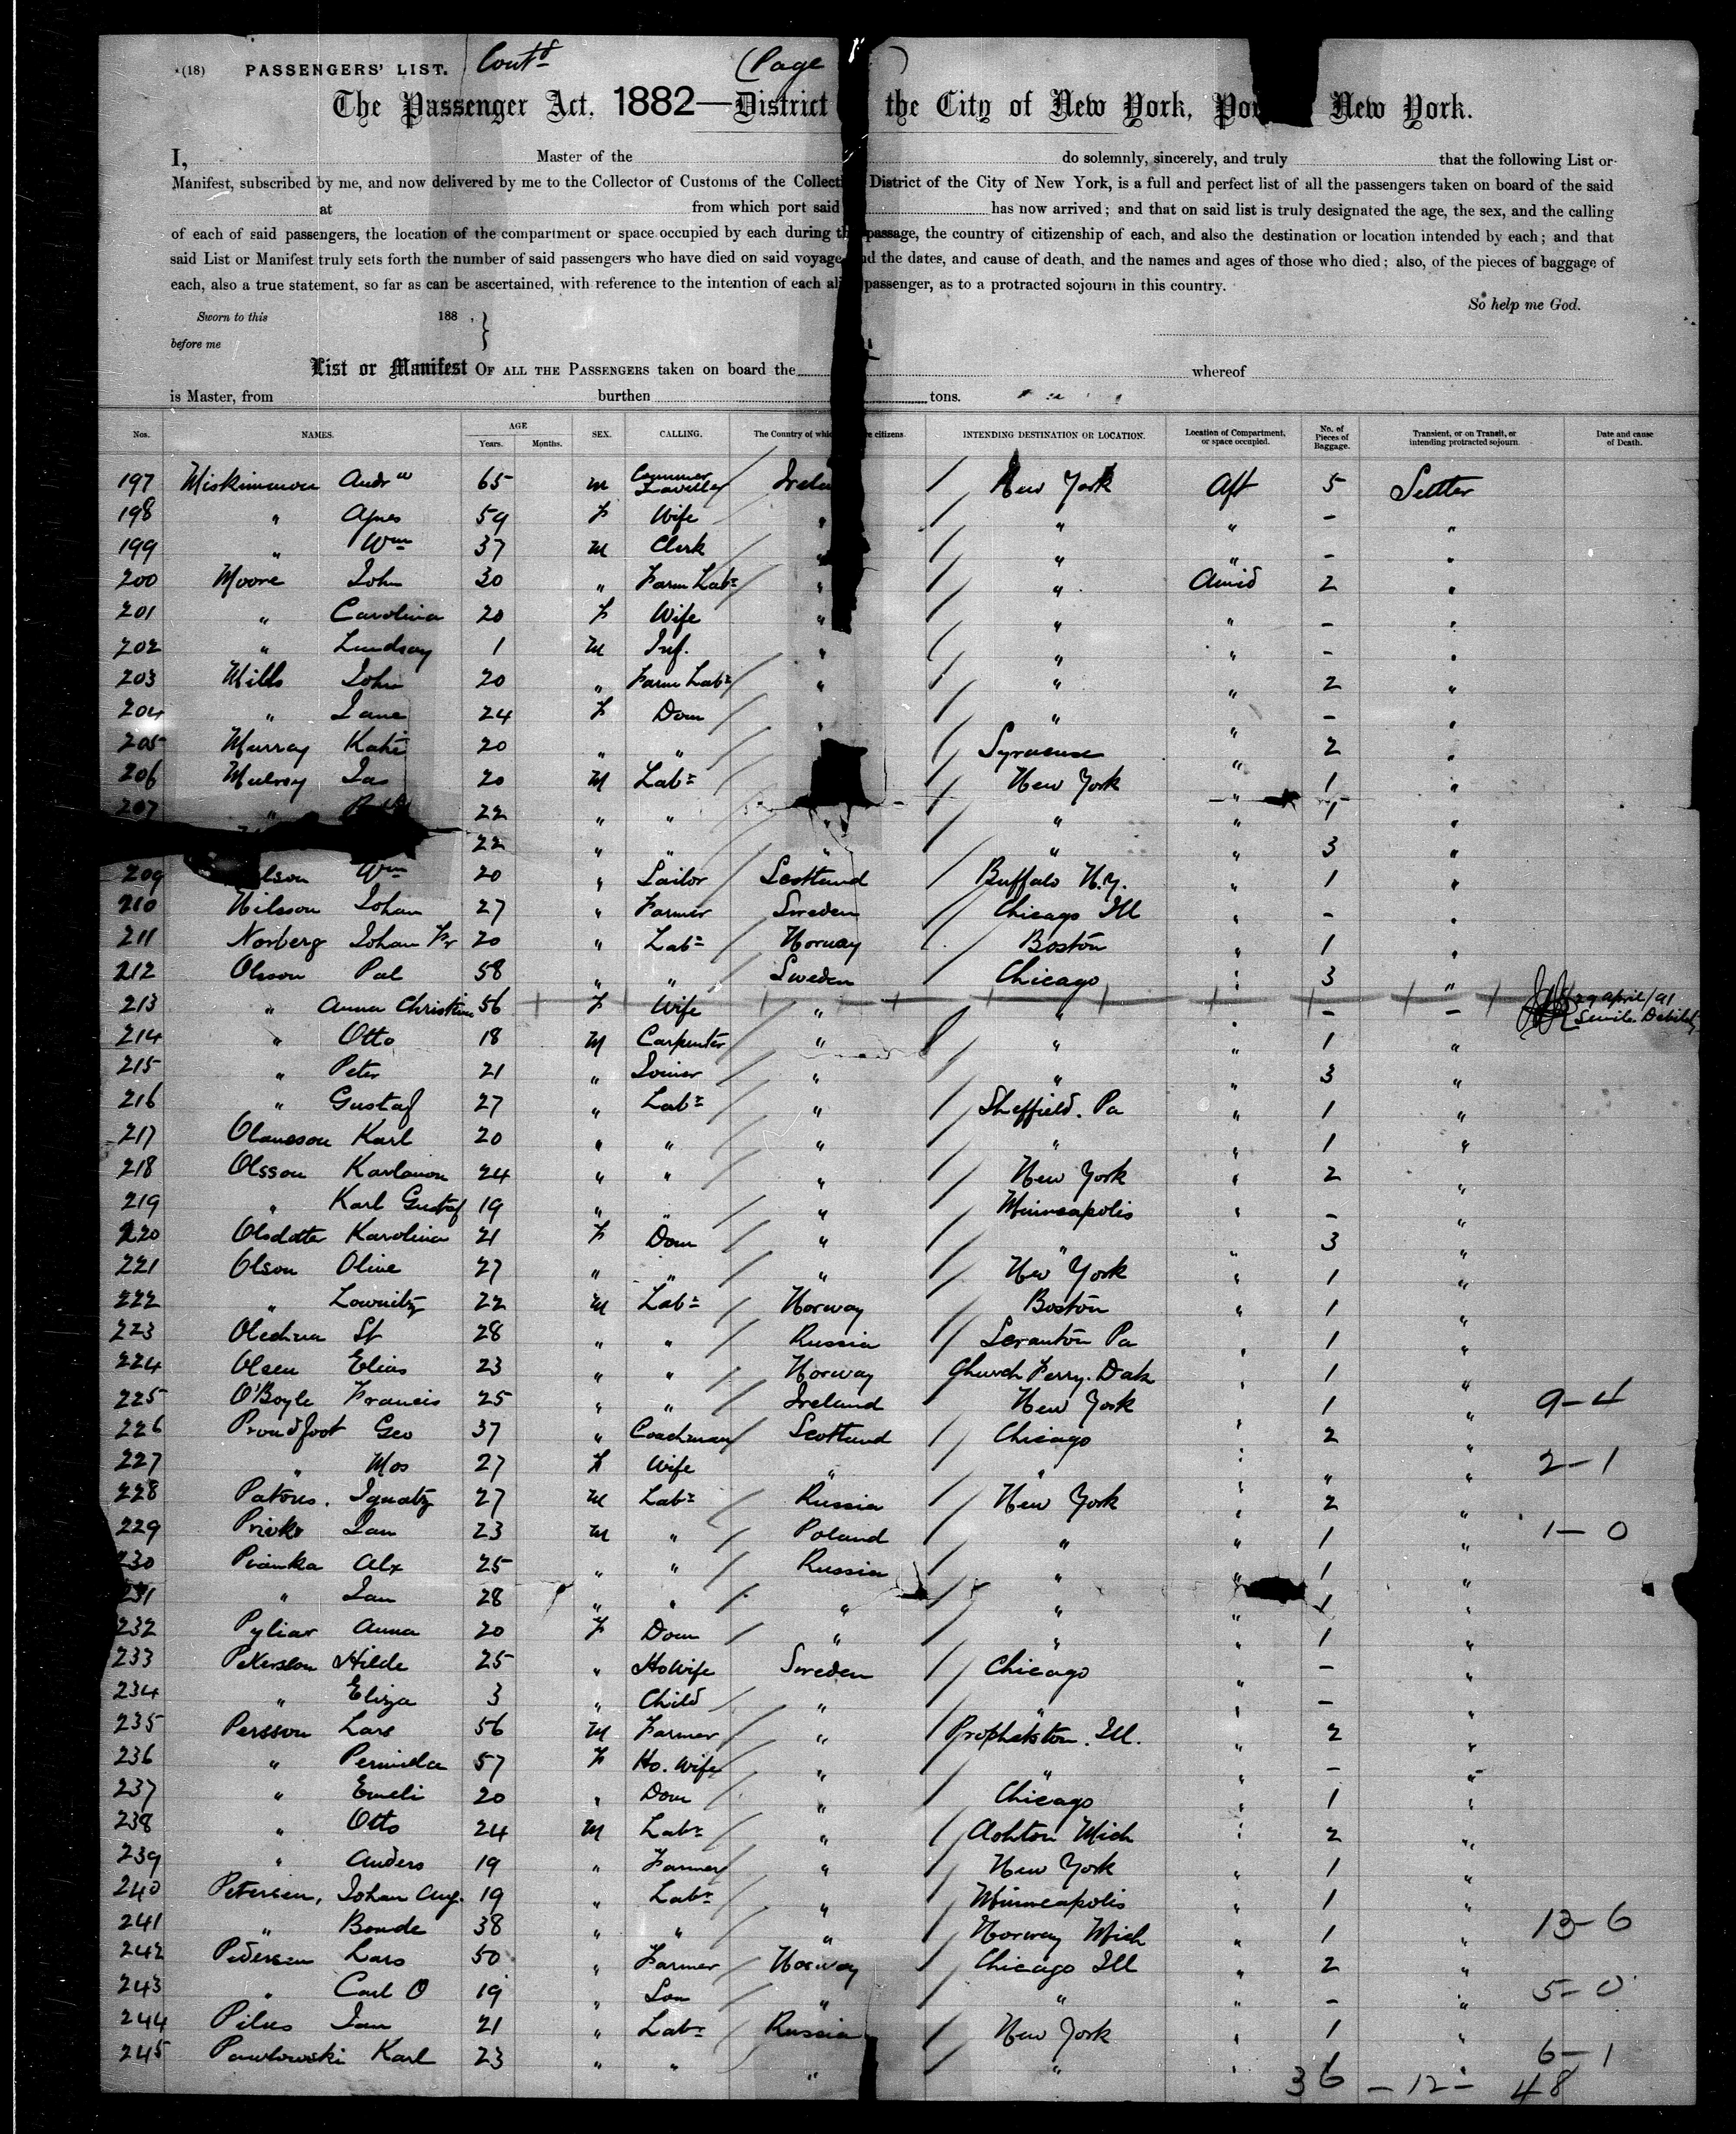 (18) PASSENGERS' LIST. Contd (Page )
The Passenger Act, 1882—District the City of New York, Por New York.
I, Master of the do solemnly, sincerely, and truly that the following List or
Manifest, subscribed by me, and now delivered by me to the Collector of Customs of the Collecti District of the City of New York, is a full and perfect list of all the passengers taken on board of the said
at from which port said has now arrived; and that on said list is truly designated the age, the sex, and the calling
of each of said passengers, the location of the compartment or space occupied by each during th passage, the country of citizenship of each, and also the destination or location intended by each; and that
said List or Manifest truly sets forth the number of said passengers who have died on said voyage nd the dates, and cause of death, and the names and ages of those who died; also, of the pieces of baggage of
each, also a true statement, so far as can be ascertained, with reference to the intention of each ali passenger, as to a protracted sojourn in this country.
So help me God.
Sworn to this 188 ,
before me
List or Manifest OF ALL THE PASSENGERS taken on board the whereof
is Master, from burthen tons.
Nos. NAMES. AGE Years. Months. SEX. CALLING. The Country of whic e citizens. INTENDING DESTINATION OR LOCATION. Location of Compartment, or space occupied. No. of Pieces of Baggage. Transient, or on Transit, or intending protracted sojourn. Date and cause of Death.
197 Miskimmon Andrw 65 M Commer Traveller Irela New York Aft 5 Settler
198 " Agnes 59 F Wife " " " - "
199 " Wm 37 M Clerk " " " - "
200 Moore John 30 " Farm Labr " " Amid 2 "
201 " Carolina 20 F Wife " " " - "
202 " Lindsay 1 M Inf. " " " - "
203 Mills John 20 " Farm Labr " " " 2 "
204 " Jane 24 F Dom " " " - "
205 Murray Kate 20 " " Syracuse " 2 "
206 Mulroy Jas 20 M Labr New York " 1 "
207 " 22 " " " " 1 "
22 " " " " " 3 "
209 lson Wm 20 " Sailor Scotland Buffalo N.Y. " 1 "
210 Nilsson Johan 27 " Farmer Sweden Chicago Ill " - "
211 Norberg Johan Fr 20 " Labr Norway Boston " 1 "
212 Olsson Pal 58 " " Sweden Chicago " 3 "
213 " Anna Christin 56 F Wife " " - - 29 April/91 Senile Debility
214 " Otto 18 M Carpenter " " " 1 "
215 " Peter 21 " Joiner " " " 3 "
216 " Gustaf 27 " Labr " Sheffield. Pa " 1 "
217 Olausson Karl 20 " " " " " 1 "
218 Olsson 24 " " " New York " 2 "
219 " Karl Gustaf 19 " " " Minneapolis " - "
220 Olsdotter Karolina 21 F Dom " " " 3 "
221 Olson Olive 27 " " " New York " 1 "
222 " 22 M Labr Norway Boston " 1 "
223 28 " " Russia Scranton Pa " 1 "
224 Olsen Elias 23 " " Norway Church Ferry. Dak " 1 "
225 O'Boyle Francis 25 " " Ireland New York " 1 " 9-4
226 Proudfoot Geo 37 " Coachman Scotland Chicago " 2 "
227 " Mos 27 F Wife " " " " " 2-1
228 Ignatz 27 M Labr Russia New York " 2 "
229 Jan 23 M " Poland " " 1 " 1-0
230 Alx 25 " " Russia " " 1 "
231 " Jan 28 " " " " " 1 "
232 Pyliar Anna 20 F Dom " " " 1 "
233 Petersson Hilde 25 " HoWife Sweden Chicago " - "
234 " Eliza 3 " Child " " " - "
235 Persson Lars 56 M Farmer " Prophetston. Ill. " 2 "
236 " Pernilla 57 F Ho. Wife " " " - "
237 " Emeli 20 " Dom " Chicago " 1 "
238 " Otto 24 M Labr " Ashton Mich " 2 "
239 " Anders 19 " Farmer " New York " 1 "
240 Petersen, Johan Aug. 19 " Labr " Minneapolis " 1 "
241 " Bonde 38 " " " Norway Mich " 1 " 13-6
242 Pedersen Lars 50 " Farmer Norway Chicago Ill " 2 "
243 " Carl O 19 " Son " " " - " 5-0
244 Pilus Jan 21 " Labr Russia New York " 1 "
245 Pawlowski Karl 23 " " " " " 1 " 6-1
36 - 12 - 48